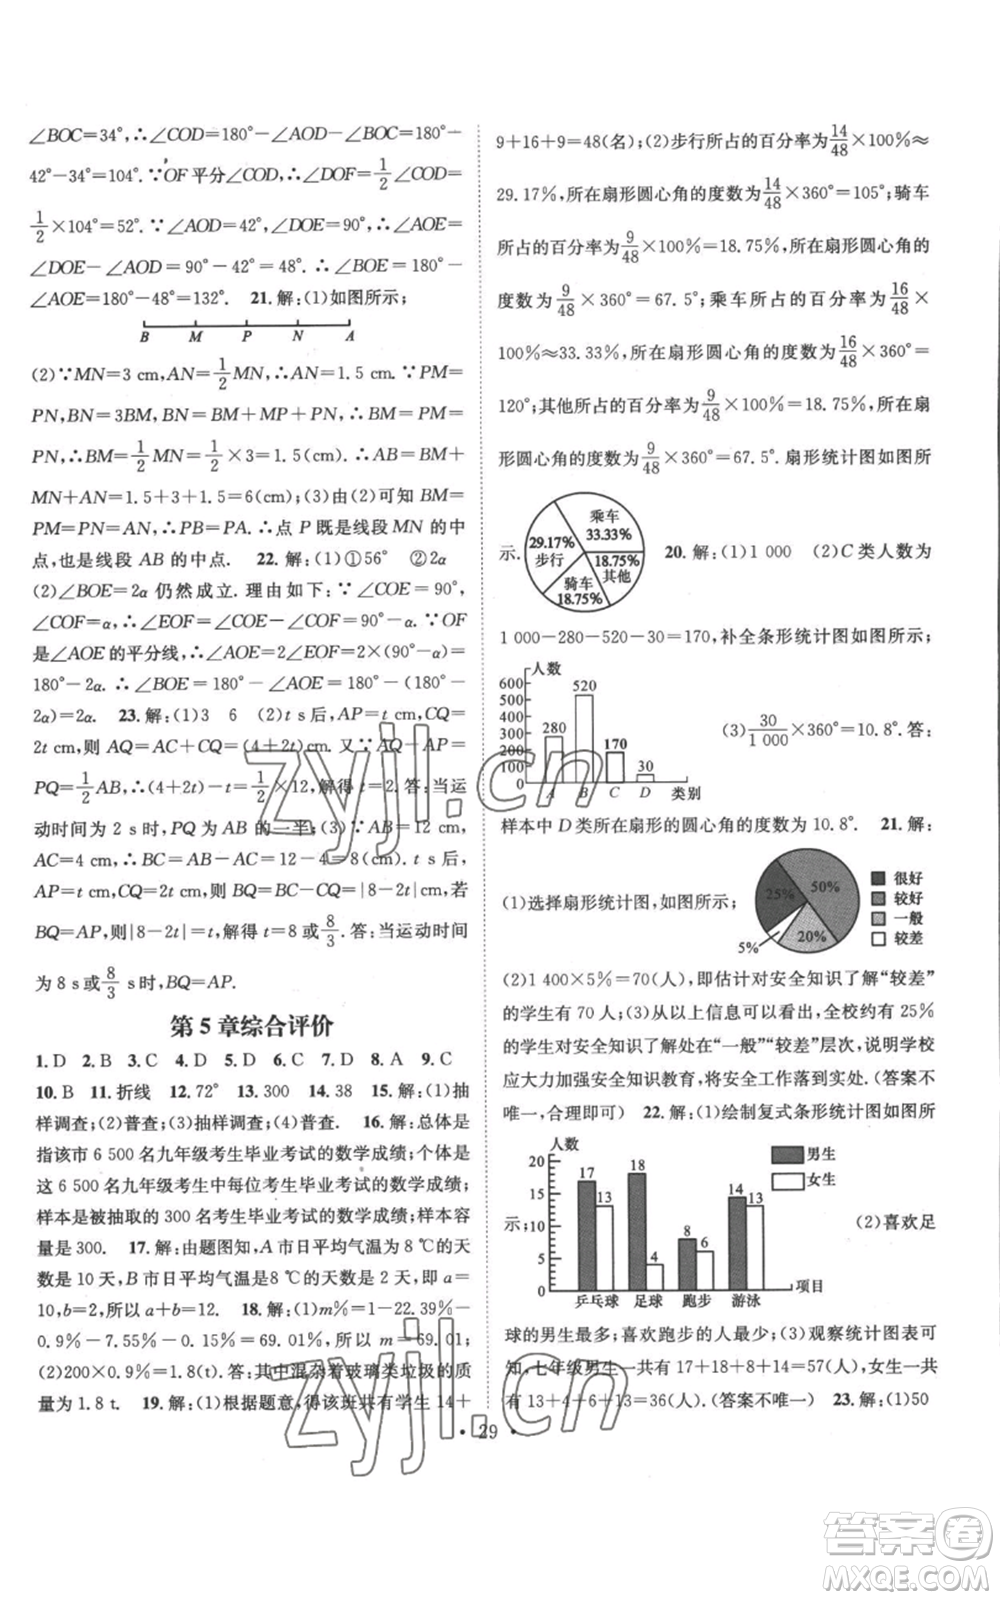 ∠BOC=34°,∴∠COD=180°-∠AOD-∠BOC=180°-
42°-34°=104°.∵OF平分∠COD,∴∠DOF=1/2∠COD=
1/2×104°=52°.∵∠AOD=42°,∠DOE=90°,∴∠AOE=
∠DOE-∠AOD=90°-42°=48°.∴∠BOE=180°-
∠AOE=180°-48°=132°. 21.解:(1)如图所示;
B M P N A
(2)∵MN=3 cm,AN=1/2MN,∴AN=1.5 cm.∵PM=
PN,BN=3BM,BN=BM+MP+PN,∴BM=PM=
PN,∴BM=1/2MN=1/2×3=1.5(cm);∴AB=BM+
MN+AN=1.5+3+1.5=6(cm);(3)由(2)可知BM=
PM=PN=AN,∴PB=PA.∴点P既是线段MN的中
点,也是线段AB的中点. 22.解:(1)①56° ②2α
(2)∠BOE=2α仍然成立.理由如下:∵∠COE=90°,
∠COF=α,∴∠EOF=∠COE-∠COF=90°-α.∵OF
是∠AOE的平分线,∴∠AOE=2∠EOF=2×(90°-α)=
180°-2α.∴∠BOE=180°-∠AOE=180°-(180°-
2α)=2α. 23.解:(1)3 6 (2)t s后,AP=t cm,CQ=
2t cm,则AQ=AC+CQ=(4+2t)cm.又∵AQ-AP=
PQ=1/2AB,∴(4+2t)-t=1/2×12,解得t=2.答:当运
动时间为2 s时,PQ为AB的一半;(3)∵AB=12 cm,
AC=4 cm,∴BC=AB-AC=12-4=8(cm).t s后,
AP=t cm,CQ=2t cm,∴BQ=BC-CQ=|8-2t|cm,若
BQ=AP,则|8-2t|=t,解得t=8或8/3.答:当运动时间
为8 s或8/3 s时,BQ=AP.
第5章综合评价
1.D 2.B 3.C 4.D 5.D 6.C 7.D 8.A 9.C
10.B 11.折线 12.72° 13.300 14.38 15.解:(1)抽
样调查;(2)普查;(3)抽样调查;(4)普查. 16.解:总体是
指该市6 500名九年级考生毕业考试的数学成绩;个体是
这6 500名九年级考生中每位考生毕业考试的数学成绩;
样本是被抽取的300名考生毕业考试的数学成绩;样本容
量是300. 17.解:由题图知,A市日平均气温为8 ℃的天
数是10天,B市日平均气温是8 ℃的天数是2天,即a=
10,b=2,所以a+b=12. 18.解:(1)m%=1-22.39%-
0.9%-7.55%-0.15%=69.01%,所以m=69.01;
(2)200×0.9%=1.8(t).答:其中混杂着玻璃类垃圾的质
量为1.8 t. 19.解:(1)根据题意,得该班共有学生14+
9+16+9=48(名);(2)步行所占的百分率为14/48×100%≈
29.17%,所在扇形圆心角的度数为14/48×360°=105°;骑车
所占的百分率为9/48×100%=18.75%,所在扇形圆心角的
度数为9/48×360°=67.5°;乘车所占的百分率为16/48×
100%≈33.33%,所在扇形圆心角的度数为16/48×360°=
120°;其他所占的百分率为9/48×100%=18.75%,所在扇
形圆心角的度数为9/48×360°=67.5°.扇形统计图如图所
示.
乘车
33.33%
29.17%
步行
18.75%
其他
骑车
18.75%
20.解:(1)1 000 (2)C类人数为
1 000-280-520-30=170,补全条形统计图如图所示;
人数
600
500
400
300
200
100
0
280
520
170
30
A B C D 类别
(3)30/1 000×360°=10.8°.答:
样本中D类所在扇形的圆心角的度数为10.8°. 21.解:
(1)选择扇形统计图,如图所示;
25%
50%
20%
5%
很好
较好
一般
较差
(2)1 400×5%=70(人),即估计对安全知识了解“较差”
的学生有70人;(3)从以上信息可知,全校约有25%
的学生对安全知识了解处在“一般”“较差”层次,说明学校
应大力加强安全知识教育,将安全工作落到实处.(答案不
唯一,合理即可) 22.解:(1)绘制复式条形统计图如图所
示;
人数
20
15
10
5
0
17
13
18
4
8
6
14
13
男生
女生
乒乓球 足球 跑步 游泳 项目
(2)喜欢足
球的男生最多;喜欢跑步的人最少;(3)观察统计图表可
知,七年级男生一共有17+18+8+14=57(人),女生一共
有13+4+6+13=36(人).(答案不唯一) 23.解:(1)50
·29·
zyjl.cn
zyjl.cn
答案圈
MXQE.COM